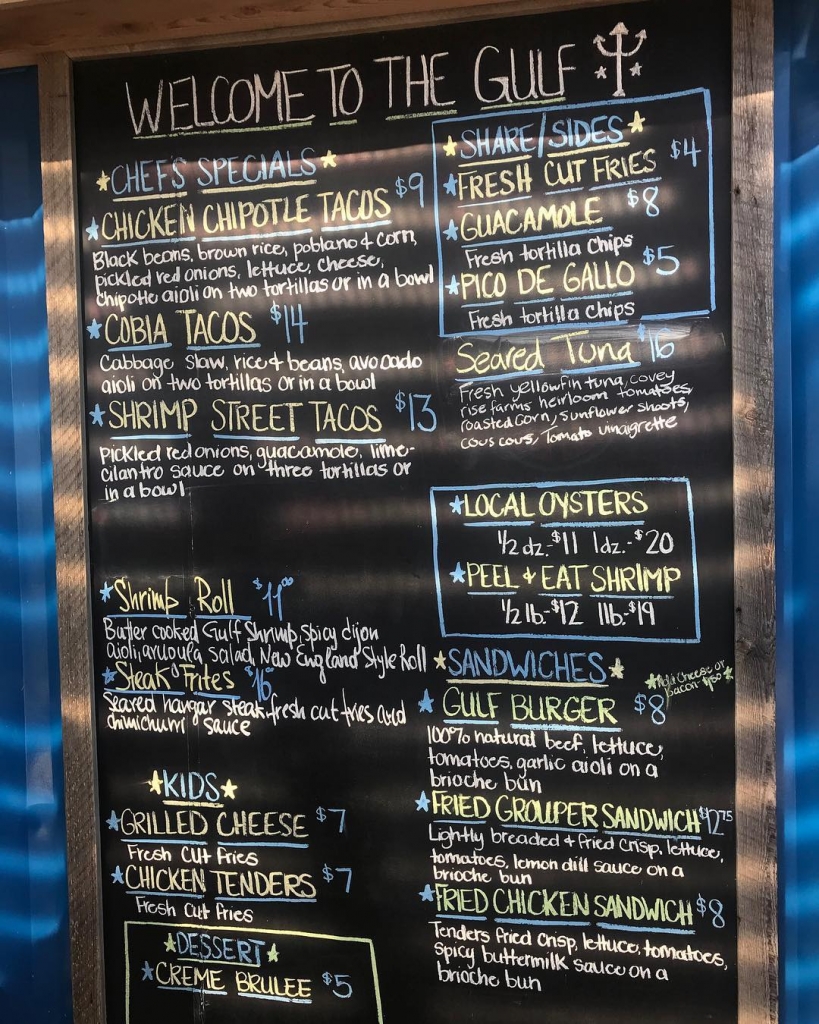 WELCOME TO THE GULF
CHEF'S SPECIALS
CHICKEN CHIPOTLE TACOS $9
Black beans, brown rice, poblano & corn,
pickled red onions, lettuce, cheese,
chipotle aioli on two tortillas or in a bowl
COBIA TACOS $14
Cabbage slaw, rice & beans, avocado
aioli on two tortillas or in a bowl
SHRIMP STREET TACOS $13
Pickled red onions, guacamole, lime-
cilantro sauce on three tortillas or
in a bowl
Shrimp Roll
Butter cooked Gulf Shrimp, spicy dijon
aioli, arugula salad, New England Style Roll
Steak Frites $16
Seared hangar steak, fresh cut fries and
chimichurri sauce
KIDS
GRILLED CHEESE $7
Fresh Cut fries
CHICKEN TENDERS $7
Fresh Cut fries
DESSERT
CREME BRULEE $5
SHARE/SIDES
FRESH CUT FRIES $4
GUACAMOLE $8
Fresh tortilla chips
PICO DE GALLO $5
Fresh tortilla chips
Seared Tuna $16
Fresh yellowfin tuna, covey
rise farms heirloom tomatoes,
roasted corn, sunflower shoots,
cous cous, Tomato vinaigrette
LOCAL OYSTERS
1/2 dz.-$11 1dz.-$20
PEEL & EAT SHRIMP
1/2 lb-$12 1lb-$19
SANDWICHES
Add Cheese or
Bacon $1.50
GULF BURGER $8
100% natural beef, lettuce,
tomatoes, garlic aioli on a
brioche bun
FRIED GROUPER SANDWICH $12.75
Lightly breaded & fried crisp, lettuce,
tomatoes, lemon dill sauce on a
brioche bun
FRIED CHICKEN SANDWICH $8
Tenders fried crisp, lettuce, tomatoes,
spicy buttermilk sauce on a
brioche bun